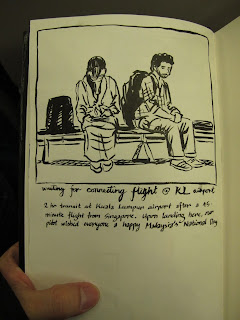 waiting for connecting flight @ KL airport
2 hr transit at Kuala Lumpur airport after a 45-
minute flight from Singapore. Upon landing here, our
pilot wished everyone a happy Malaysia's National Day